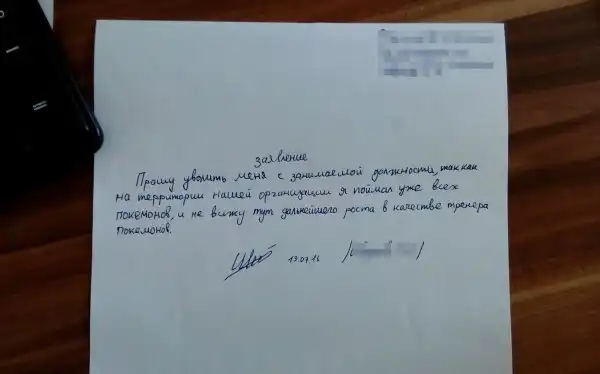 заявление
Прошу уволить меня с занимаемой должности, так как
на территории нашей организации я поймал уже всех
покемонов, и не вижу тут дальнейшего роста в качестве тренера
покемонов.
13.07.16